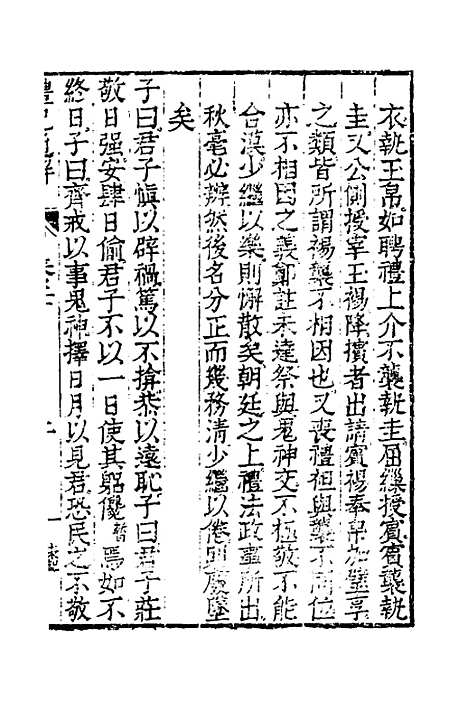 衣執玉帛如聘禮上介不襲執圭屈繅授賓賓襲執
圭又公側授宰玉裼降擯者出請賓裼奉束帛加璧享
之類皆所謂裼襲不相因也又喪禮袒與襲不同位
亦不相因之義鄭註未達祭與鬼神交不極敬不能
合漠少繼以樂則懈散矣朝廷之上禮法政事所出
秋毫必辨然後名分正而幾務清少繼以倦則廢墜
矣
子曰君子愼以辟禍篤以不揜恭以遠恥子曰君子莊
敬日强安肆日偷君子不以一日使其躬儳暫焉如不
終日子曰齊戒以事鬼神擇日月以見君恐民之不敬
禮記通解